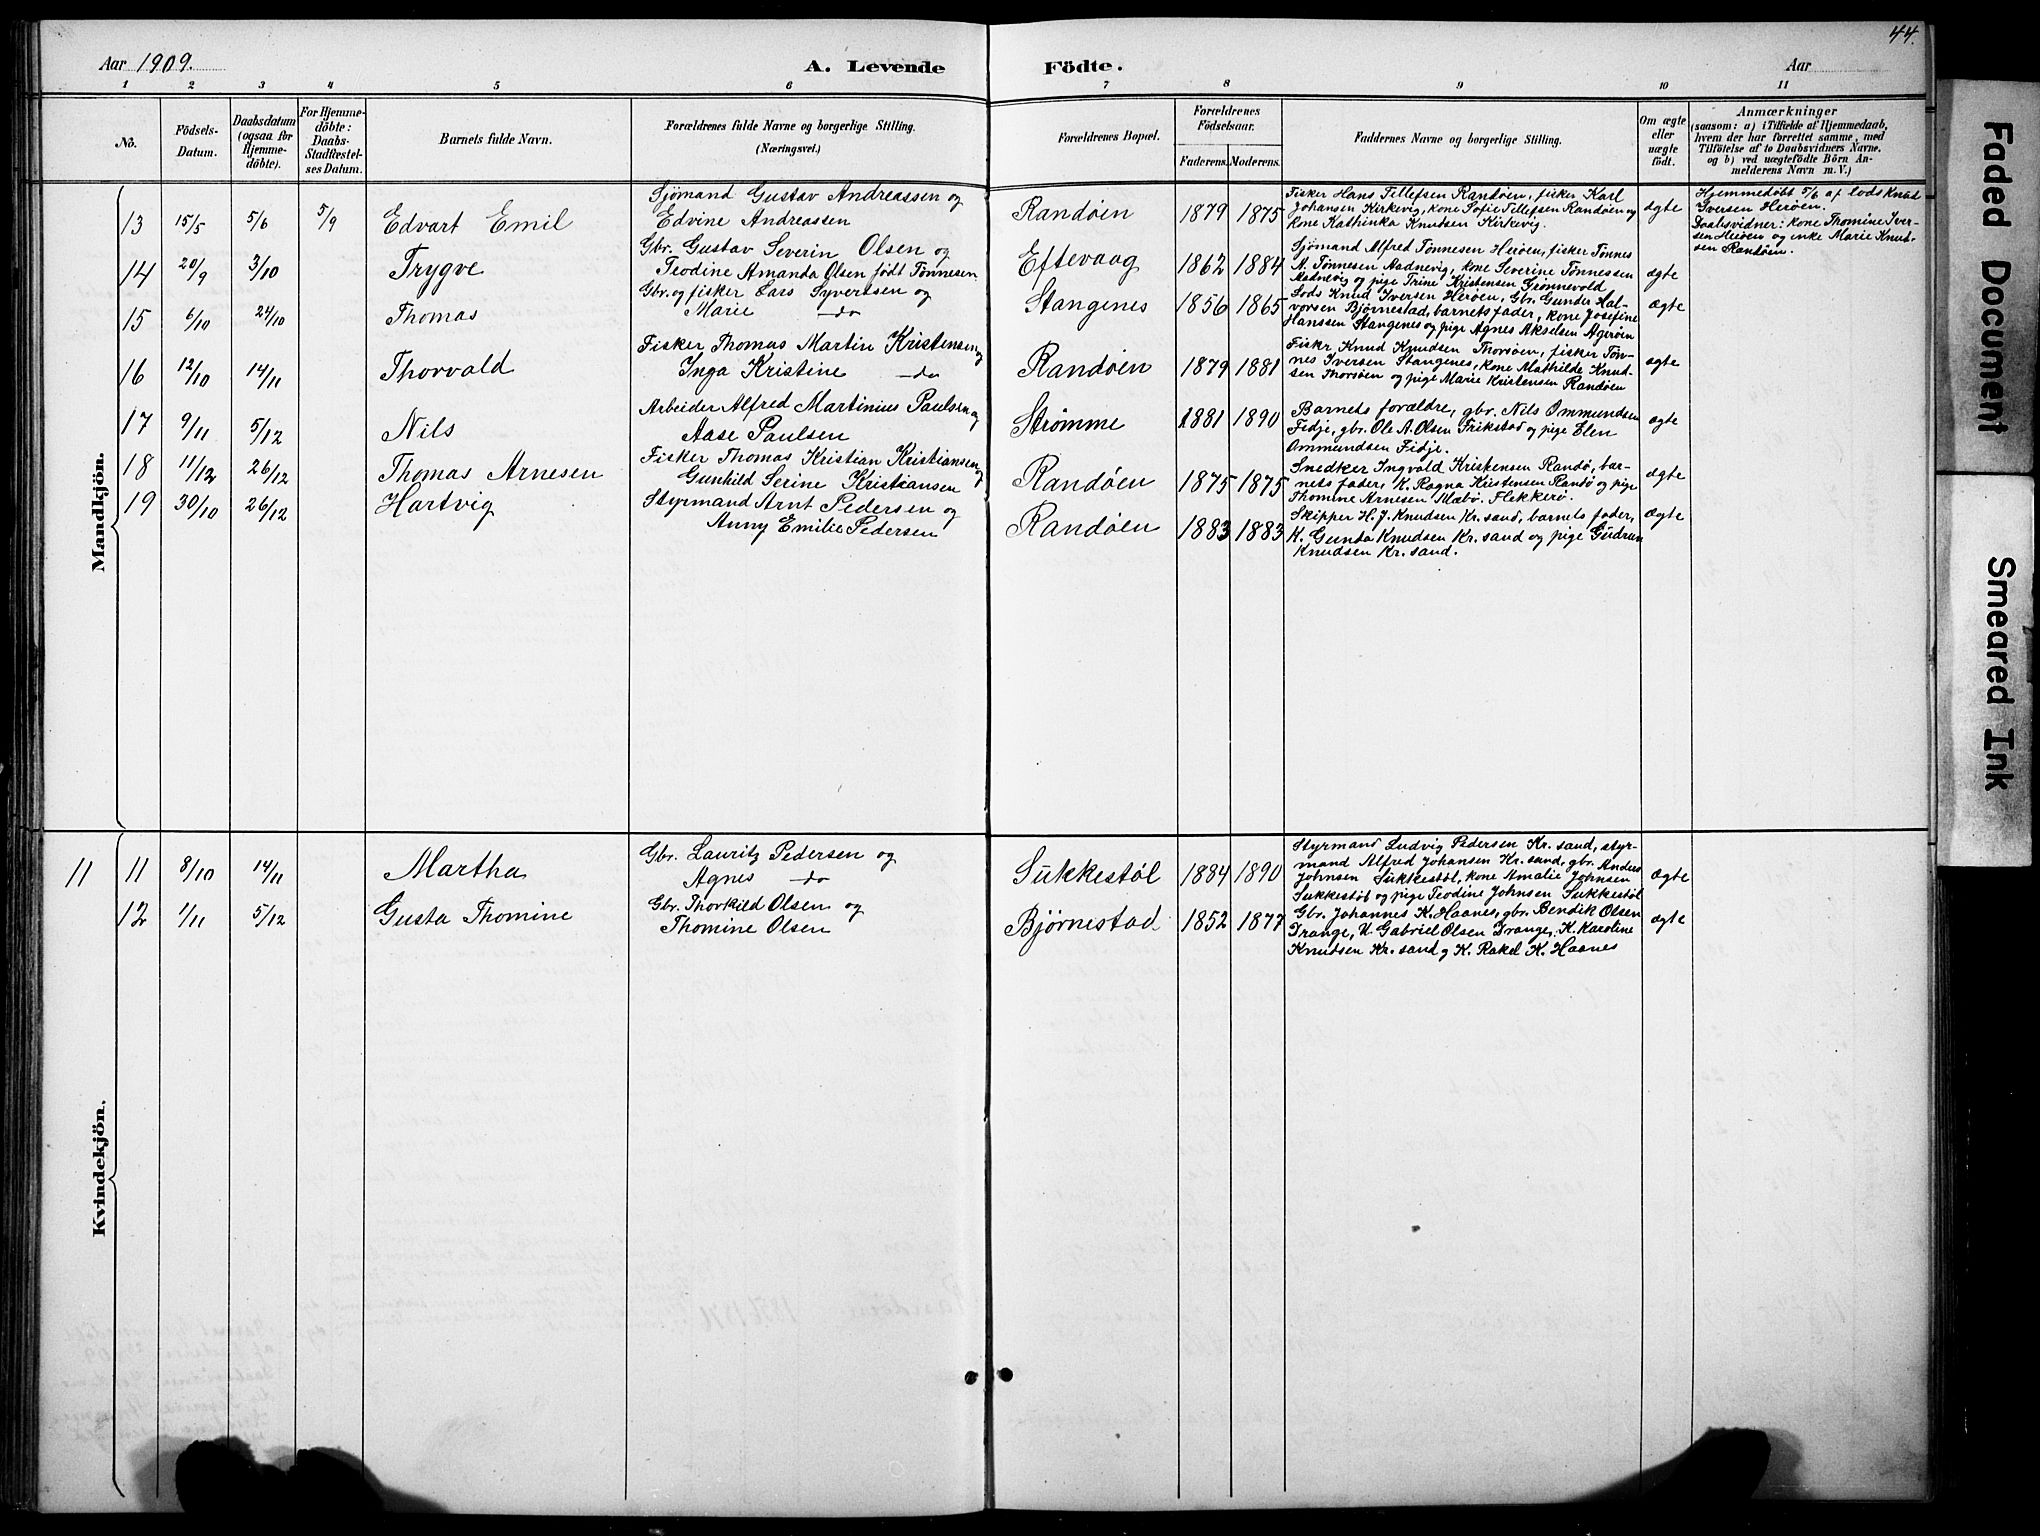 44.
Aar 1909.
A. Levende Födte.
Aar
1 2 3 4 5 6 7 8 9 10 11
No.
Födsels-
Datum.
Daabsdatum
(ogsaa for
Hjemme-
döbte).
For Hjemme-
döbte:
Daabs-
Stadfæstel-
ses Datum.
Barnets fulde Navn.
Forældrenes fulde Navne og borgerlige Stilling.
(Næringsvei.)
Forældrenes Bopæl.
Forældrenes
Födselsaar.
Faderens. Moderens.
Faddernes Navne og borgerlige Stilling.
Om ægte
eller
uægte
født.
Anmærkninger
(saasom: a) i Tilfælde af Hjemmedaab,
hvem der har forrettet samme, med
Tilföielse af to Daabsvidners Navne,
og b) ved uægtefödte Börn An-
melderens Navn m. V.)
Mandkjön.
13 15/5 5/6 5/9 Edvart Emil
Sjømand Gustav Andreassen og
Edvine Andreassen
Randøen 1879 1875
Fisker Hans Tellefsen Randøen, fisker Karl
Johansen Kirkevig, kone Sofie Tellefsen Randøen og
Kone Kathinka Knudsen Kirkevig.
ægte
Hjemmedøbt 5/6 af lods Knud
Iversen Herøen.
Daabsvidner: kone Thomine Iver-
sen Herøen og enke Marie Knud-
sen Randøen.
14 20/9 3/10 Trygve
Gbr. Gustav Severin Olsen og
Teodine Amanda Olsen født Tønnesen
Eftevaag 1862 1884
Sjømand Alfred Tønnesen Herøen, fisker Tønnes
A. Tønnesen Aadnevig, kone Severine Tønnessen
Aadnevig og pige Trine Kristensen Grønnevold
ægte
15 6/10 24/10 Thomas
Gbr. og fisker Lars Syvertsen og
Marie do
Stangenes 1856 1865
Lods Knud Iversen Herøen, Gbr. Gunder Hal-
vorsen Bjørnestad, barnets fader, kone Josefine
Hanssen Stangenes og pige Agnes Akselsen Agerøen
ægte
16 12/10 14/11 Thorvald
Fisker Thomas Martin Kristensen og
Inga Kristine do
Randøen 1879 1881
Fiskr Knud Knudsen Thorsøen, fisker Tøn-
nes Iversen Stangenes, kone Mathilde Knud-
sen Thorsøen og pige Marie Kristensen Randøen
ægte
17 9/11 5/12 Nils
Arbeider Alfred Martinius Paulsen og
Aase Paulsen
Strømme 1881 1890
Barnets forældre, gbr. Nils Ommundsen
Fidje, gbr. Ole A. Olsen Frikstad og pige Elen
Ommundsen Fidje.
ægte
18 11/12 26/12 Thomas Arnesen
Fisker Thomas Kristian Kristiansen og
Gunhild Serine Kristiansen
Randøen 1875 1875
Snedker Ingvald Kristensen Randø, bar-
nets fader, K. Ragna Kristensen Randø og pige
Thomine Arnesen Mæbø. Flekkerø.
ægte
19 30/10 26/12 Hartvig
Styrmand Arnt Pedersen og
Anny Emilie Pedersen
Randøen 1883 1883
Skipper H. J. Knudsen Kr. sand, barnets fader,
K. Gunda Knudsen Kr. sand og pige Gudrun
Knudsen Kr. sand.
ægte
Kvindekjön.
11 11 8/10 14/11 Martha
Gbr. Lauritz Pedersen og
Agnes do
Sukkestøl 1884 1890
Styrmand Ludvig Pedersen Kr. sand, styr-
mand Alfred Johansen Kr. sand, gbr. Anders
Johnsen Sukkestøl, kone Amalie Johnsen
Sukkestøl og pige Teodine Johnsen Sukkestøl
ægte
12 1/11 5/12 Gusta Thomine
Gbr. Thorkild Olsen og
Thomine Olsen
Bjørnestad 1852 1877
Gbr. Johannes K. Haanes, gbr. Bendik Olsen
Drange, U. Gabriel Olsen Drange, K. Karoline
Knudsen Kr. sand og K. Rakel K. Haanes
ægte
Faded Document
Smeared Ink